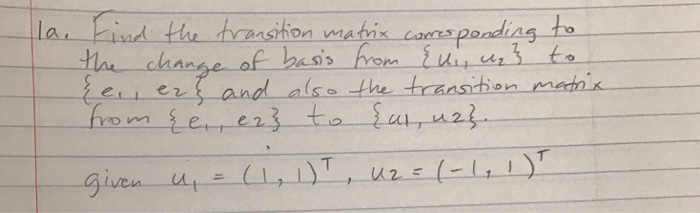 1a. Find the transition matrix corresponding to
the change of basis from {u₁, u₂} to
{e₁, e₂} and also the transition matrix
from {e₁, e₂} to {u₁, u₂}.
given u₁ = (1, 1)ᵀ, u₂ = (-1, 1)ᵀ